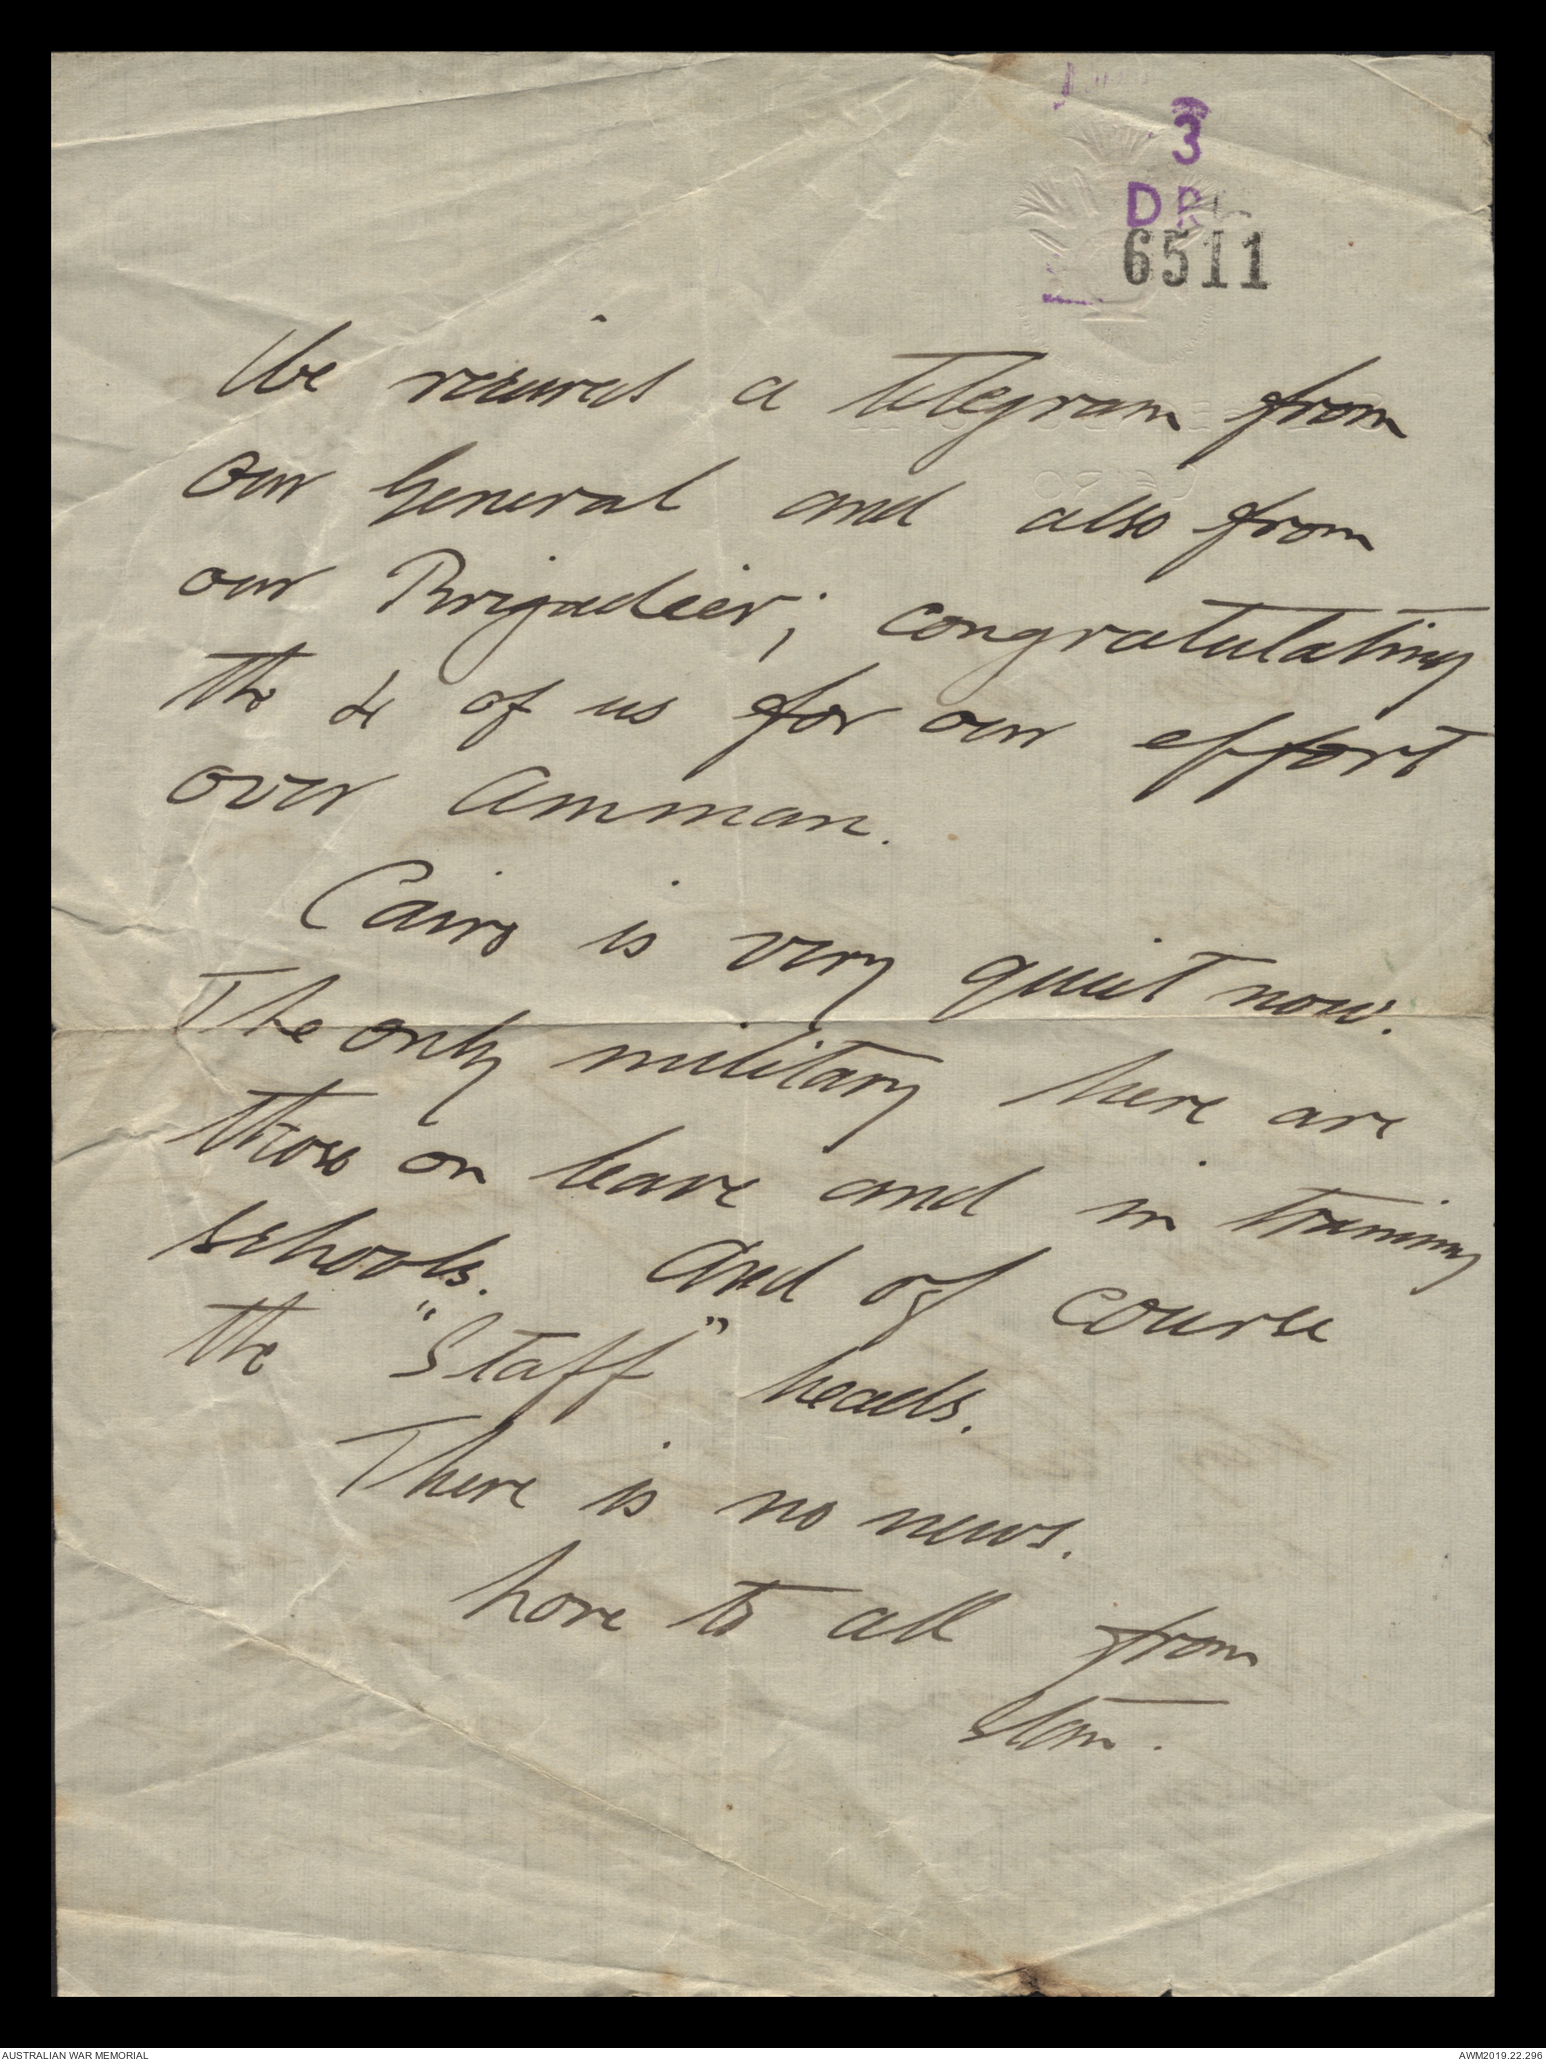 3
DRL
6511
We received a telegram from
our General and also from
our Brigadeer; congratulating
the 4 of us for our effort
over Amman.
Cairo is very quiet now.
The only military here are
those on leave and in training
schools. And of course
the "Staff" heads.
There is no news.
Love to all from
Stan.
AUSTRALIAN WAR MEMORIAL
AWM2019.22.296